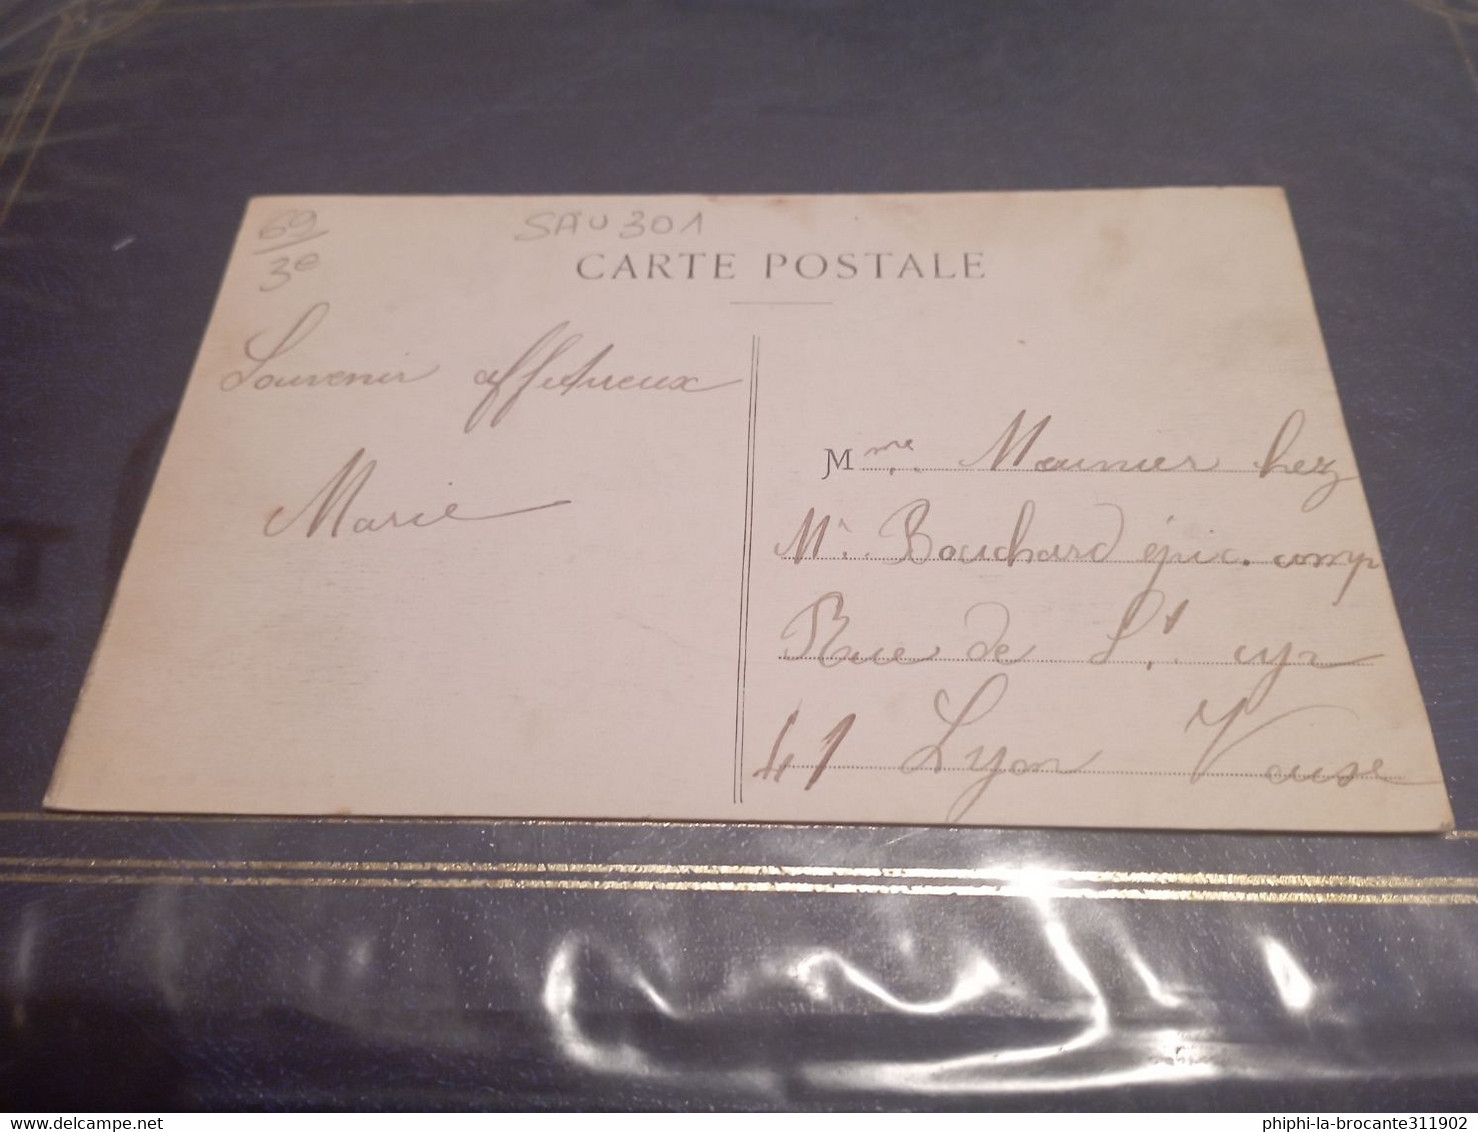 69
3e
SAU 301
CARTE POSTALE
Souvenir affectueux
Marie
Mme Meunier chez
Mr. Bouchard épic. comp
Rue de St. cyr
41 Lyon Vaise
delcampe.net
phiphi-la-brocante311902